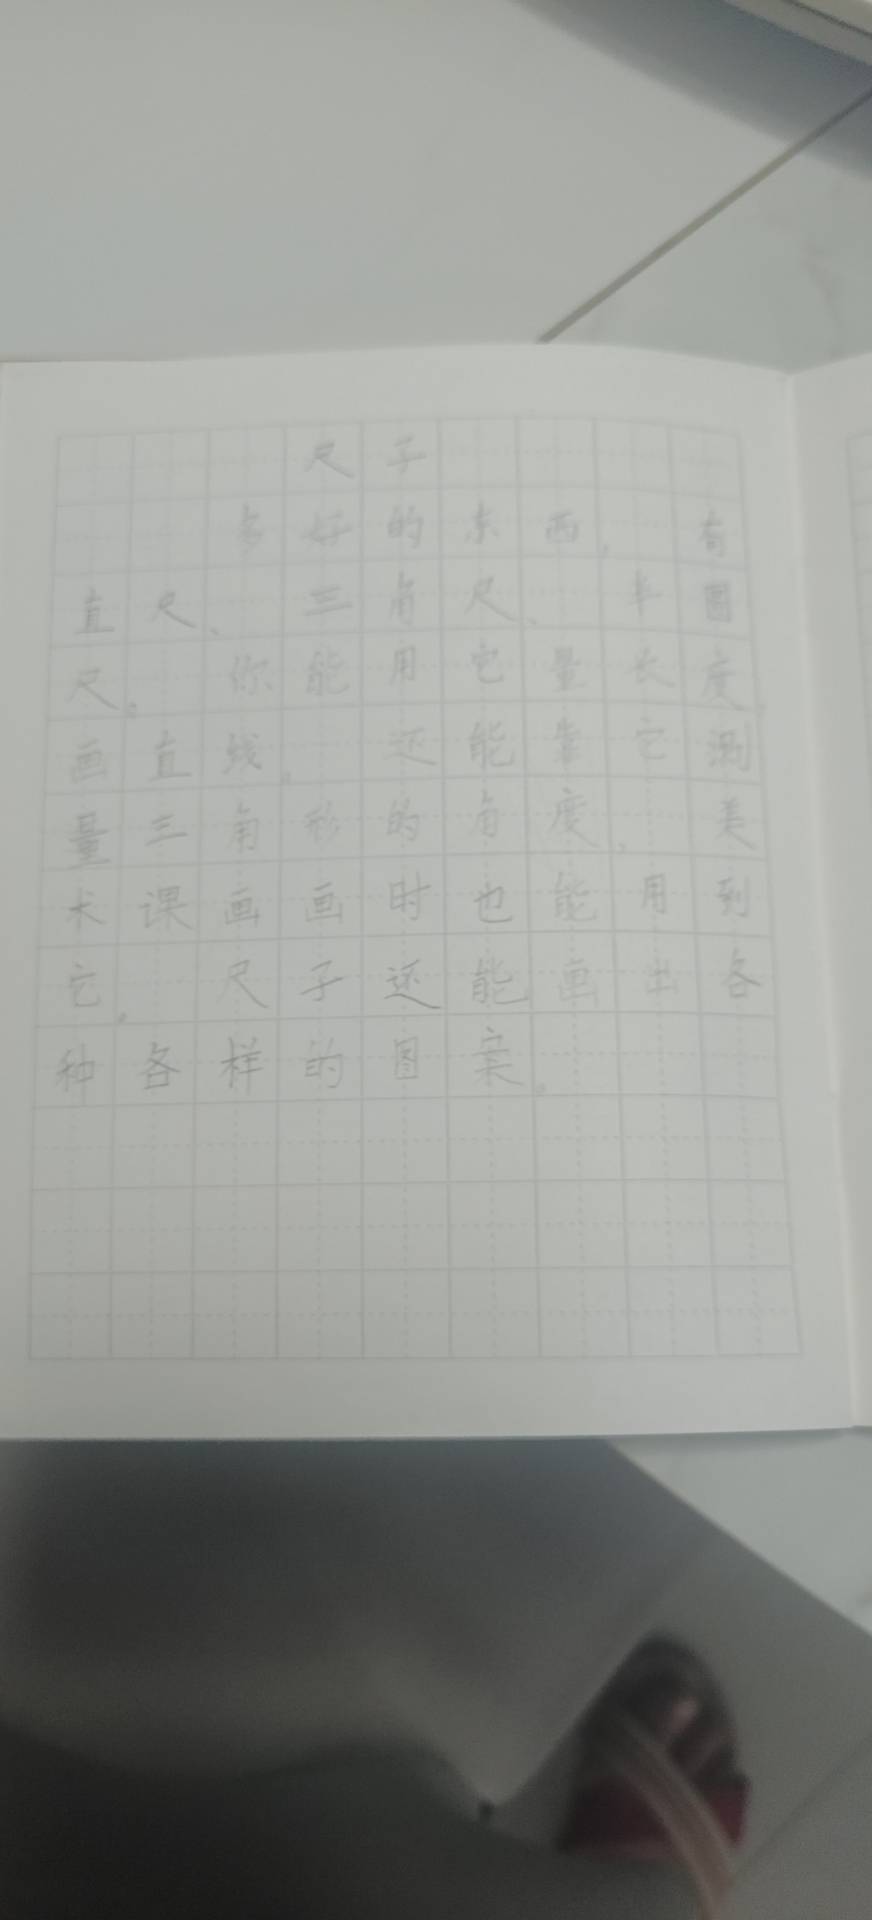 尺子
多好的东西，有
直尺、三角尺、半圆
尺。你能用它量长度
画直线。还能靠它测
量三角形的角度，美
术课画画时也能用到
它。尺子还能画出各
种各样的图案。